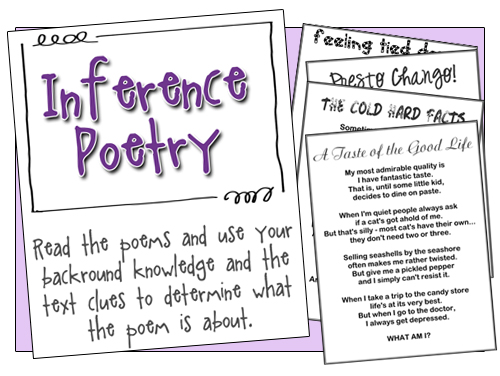 Inference
Poetry
Read the poems and use your
backround knowledge and the
text clues to determine what
the poem is about.
feeling tied
Presto Chango!
THE COLD HARD FACTS
A Taste of the Good Life
My most admirable quality is
I have fantastic taste.
That is, until some little kid,
decides to dine on paste.
When I'm quiet people always ask
if a cat's got ahold of me.
But that's silly - most cat's have their own...
they don't need two or three.
Selling seashells by the seashore
often makes me rather twisted.
But give me a pickled pepper
and I simply can't resist it.
When I take a trip to the candy store
life's at its very best.
But when I go to the doctor,
I always get depressed.
WHAT AM I?